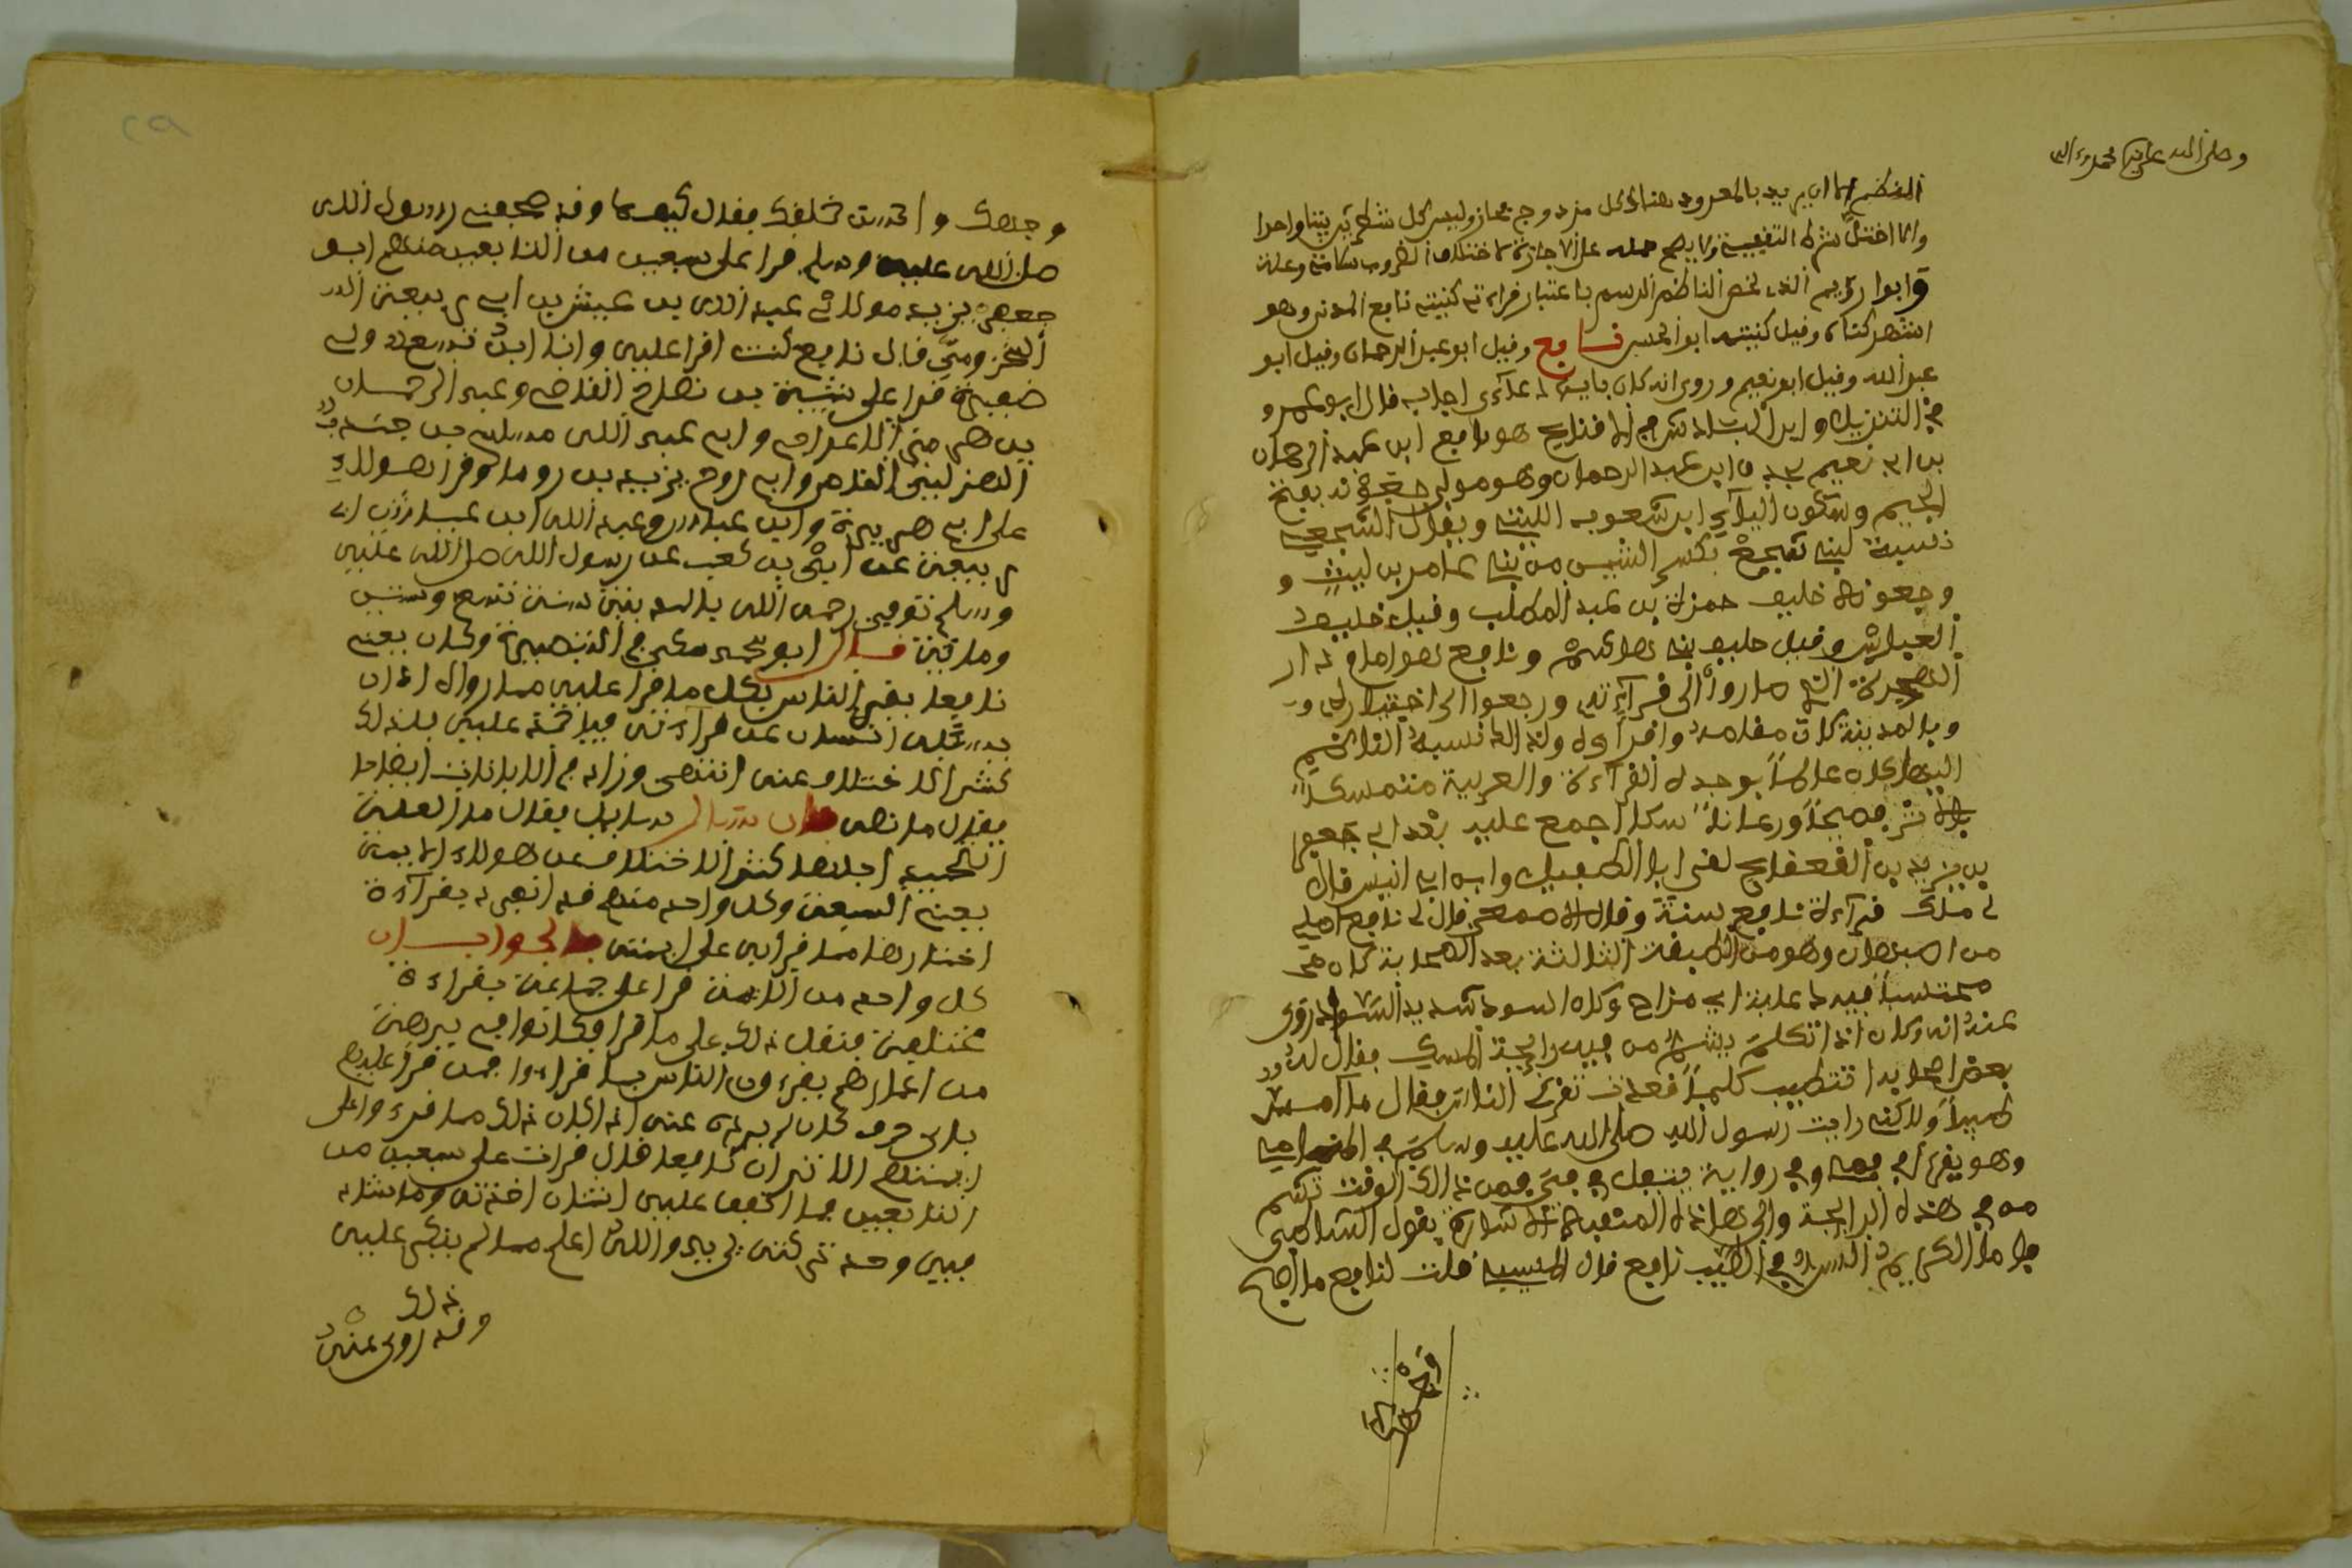 وصلى الله على سيدنا محمد وءاله
النظم اما ان يريد بالمعروف هنا كل مزدوج مجاز وليس كل شطرين بيتا واحدا
وانما اختل شرط التقفية ولا يصح حمله على الاجازة لاختلاف الضروب
وابوا رويم الذي لخص الناظم الرسم باعتبار قراءته كنيته نافع المدني وهو
اشهر كناه وقيل كنيته ابو الحسن نافع وقيل ابو عبد الرحمان وقيل ابو
عبد الله وقيل ابو نعيم وروى انه كان بايهن دعاءى اجاب قال ابو عمرو
في التنزيل وابن الباذش في الاقناع هو نافع ابن عبد الرحمان
بن ابي نعيم بن عبد الرحمان وهو مولى جعونة بفتح
الجيم وسكون ابن شعوب الليثي ويقال الشجعي
نسبة لبني شجع بكسر الشين من بني عامر بن ليث و
وجعونة حليف حمزة بن عبد المطلب وقيل حليف
العباس وقيل حليف بني هاشم ونافع هو امام دار
الهجرة الذي صاروا الى قراءته ورجعوا الى اختياره و
وبالمدينة كان مقامه واقراؤه ولذا نسبه الناظم
اليها كان عالما بوجوه القراءة والعربية متمسكا
بالاثر فصيحا ورعا ناسكا اجمع عليه بعد ابي جعفر
بن يزيد بن القعقاع لقى ابا الطفيل وابن ابي انيس قال
لي ملك قراءة نافع سنة وقال الاصمعي قال لي نافع اصلي
من اصبهان وهو من الطبقة الثالثة بعد الصحابة كان
محتسبا فيه دعابة اي مزاح وكان اسود شديد السواد روى
عنه انه كان اذا تكلم يشم من فيه رايحة المسك فقال له
بعض اصحابه اتتطيب كلما قعدت تقرئ الناس فقال ما امس
طيبا ولاكني رايت رسول الله صلى الله عليه وسلم في المنام
وهو يقرأ في فمي وفي رواية يتفل في في فمن ذالك الوقت تشم
من في هذه الرايحة والى هاذه المنقبة الاشارة يقول الشاطبي
فاما الكريم السر في الطيب نافع قال المسيبي قلت لنافع ما اصبح
وجهك و خلقك فقال كيف لا وقد صافحني رسول الله
صلى الله عليه وسلم قرا على سبعين من التابعين منهم ابو
جعفر يزيد مولى عبد الله بن عياش بن ابي ربيعة
المخزومي قال نافع كنت اقرا عليه وانا ابن تسع ولي
ضفيرة قرا على شيبة بن نصاح القاضي وعبد الرحمان
بن هرمز الاعرج وابي عبد الله مسلم بن جندب
الهذلي القاص وابي روح يزيد بن رومان وقرا هولاء
على ابي هريرة وابن عباس وعبد الله ابن عياش ابن ابي
ربيعة عن ابي بن كعب عن رسول الله صلى الله عليه
وسلم توفي رحمه الله بالمدينة سنة تسع وستين
ومائة قال ابو محمد مكي في التبصرة وكان يعني
نافعا يقرئ الناس بكل ما قرا عليه مما رواه الا ان
يسئله انسان عن قراءته فياخذه عليه بذلك
كثر الاختلاف عنه انتهى وزاد في الابانة ايضاحا
فقال ما نصه فان سال سايل فقال ما العلة
التي من اجلها كثر الاختلاف عن هولاء الايمة
يعني السبعة وكل واحد منهم قد انفرد بقراءة
اختارها مما قرا به على ايمته فالجواب ان
كل واحد من الايمة قرا على جماعة بقراءة
مختلفة فنقل ذلك على ما قرا وكانوا في برهة
من اعمارهم يقرءون الناس بما قراوا فمن قرأ عليهم
باي حرف كان لم يرده عنه اذ كان ذلك مما قرءوا على
ايمتهم الا ترى ان نافعا قال قرات على سبعين من
التابعين فما اتفق عليه اثنان اخذته وما شذ
فيه واحد تركته يريد والله اعلم مما لم ينكر عليه
ذلك
وقد روى عنه